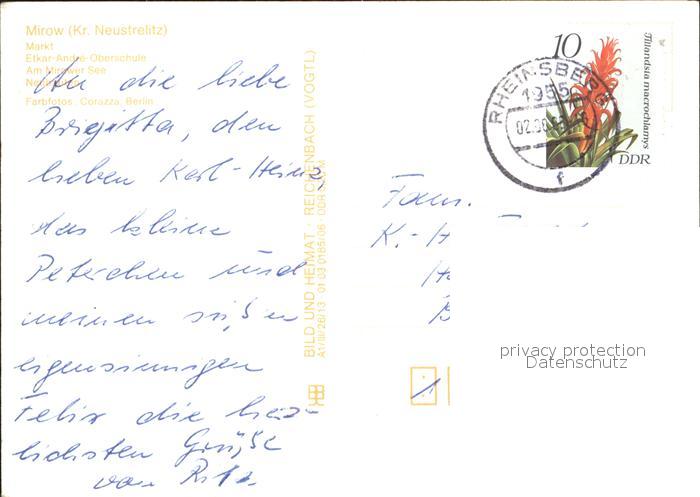 Mirow (Kr. Neustrelitz)
Markt
Etkar-André-Oberschule
Am Mirower See
Farbfotos: Corazza, Berlin
An die liebe
Brigitta, den
lieben Karl-Heinz,
das kleine
Peterchen und
meinen süßen
eigensinnigen
Felix die herz-
lichsten Grüße
von
BILD UND HEIMAT · REICHENBACH (VOGTL)
A1/III/26/13 01 03 0185/06 DDR M
10
Tillandsia macrochlamys
DDR
RHEINSBERG
1955
f
Fam.
K.-H
privacy protection
Datenschutz